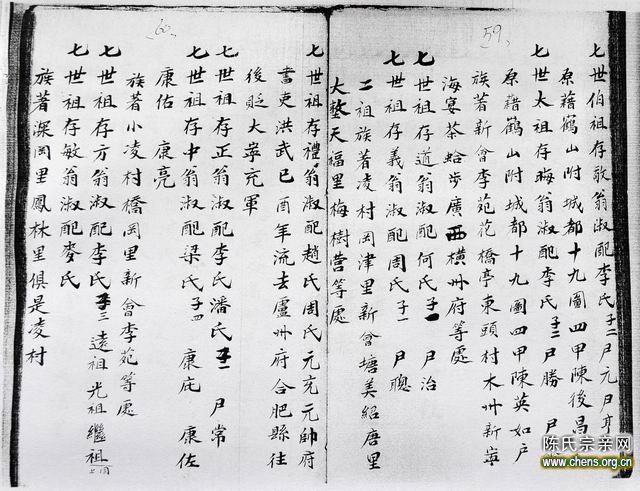 59
七世伯祖存敬翁淑配李氏子二 尸元 尸亨
原籍鶴山附城都十九圖四甲陳後昌
七世太祖存晦翁淑配李氏子三 尸勝 尸
原籍鶴山附城都十九圖四甲陳英如戶
族著新會李苑花橋亭東頭村木州新寧
海宴茶蛤步廣西橫州府等處
七世祖存道翁淑配何氏子一 尸治
七世祖存義翁淑配周氏子一 尸聰
二祖族著凌村岡津里新會塘美紹唐里
大整天福里梅樹營等處
60
七世祖存禮翁淑配趙氏周氏元充元帥府
書吏洪武己酉年流去盧州府合肥縣往
後貶大寧充軍
七世祖存正翁淑配李氏潘氏子一 尸常
七世祖存中翁淑配梁氏子四 康庇 康佐
康佑 康亮
族著小凌村橋岡里新會李苑等處
七世祖存方翁淑配李氏子三 遠祖 光祖 繼祖
七世祖存敏翁淑配麥氏
族著深岡里鳳林里俱是凌村
陈氏宗亲网
www.chens.org.cn